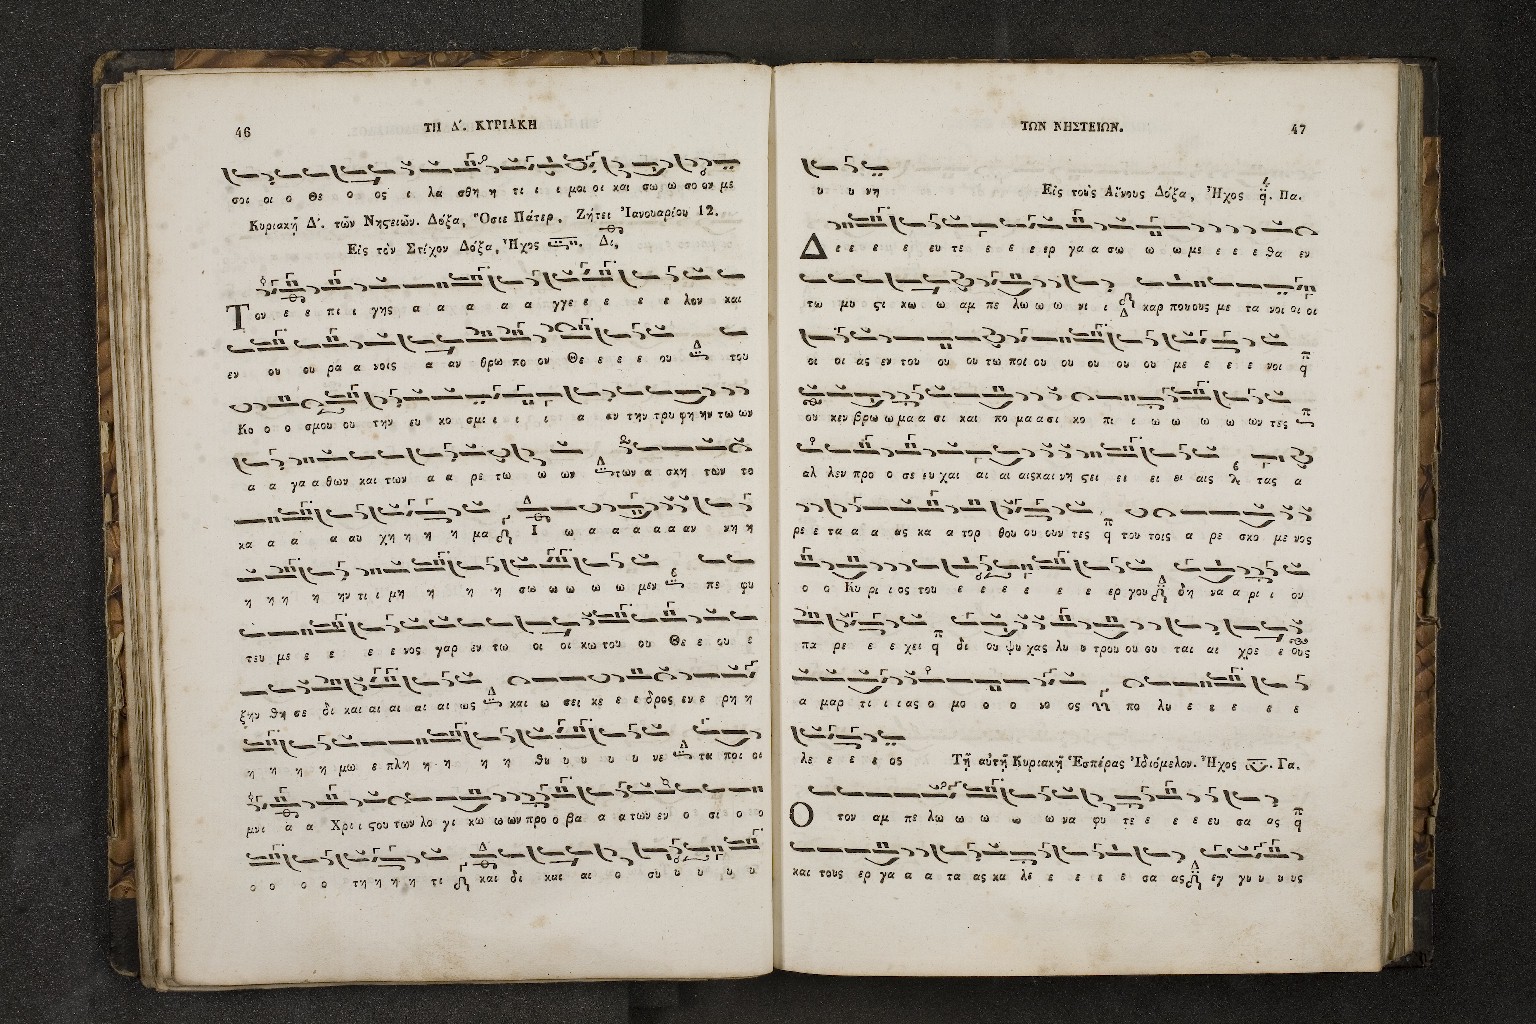 46
ΤΗ Δ΄. ΚΥΡΙΑΚΗ
σοι οι ο Θε ο ος ι λα σθη η τι ι ι μοι οι και σω ω σο ον με
Κυριακῇ Δ΄. τῶν Νηϛειῶν. Δόξα, Ὅσιε Πάτερ, Ζήτει Ἰανουαρίου 12.
Εἰς τὸν Στίχον Δόξα, Ἦχος Δι,
Τον ε ε πι ι γης α α α α α γγε ε ε ε ε λον και
εν ου ου ρα α νοις α αν θρω πο ον Θε ε ε ε ου του
Κο ο ο σμου ου την ευ κο σμι ι ι ι α αν την τρυ φη ην τω ων
α α γα α θων και των α α ρε τω ω ων των α σκη των το
κα α α α αυ χη η η η μα Ι ω α α α α α αν νη η
η η η η ην τι ι μη η η η σω ω ω ω ω μεν πε φυ
τευ με ε ε ε ε νος γαρ εν τω οι οι κω του ου Θε ε ου ε
ξην θη σε δι και αι αι αι αι ως και ω σει κε ε ε δρος εν ε ρη η
η η η η μω ε πλη η η η η θυ υ υ υ υ νε τα ποι οι
μνι α α Χρι ι ϛου των λο γι κω ω ων προ ο βα α α των εν ο σι ο ο
ο ο ο ο τη η η η τι και δι και αι ο συ υ υ υ υ
ΤΩΝ ΝΗΣΤΕΙΩΝ.
47
υ υ νη Εἰς τοὺς Αἴνους Δόξα, Ἦχος q̈. Πα.
Δ ε ε ε ε ευ τε ε ε ε ερ γα α σω ω ω με ε ε ε θα εν
τω μυ ϛι κω ω αμ πε λω ω ω νι ι καρ πουους με τα νοι οι οι
οι οι ας εν του ου ου τω ποι ου ου ου ου ου με ε ε ε νοι
ου κεν βρω ω μα α σι και πο μα α σι κο πι ι ω ω ω ω ων τες
αλ λεν προ ο σε ευ χαι αι αι αις και νη ϛει ει ει ει αις τας α
ρε ε τα α α ας κα α τορ θου ου ουν τες του τοις α ρε σκο με νος
ο ο Κυ ρι ι ος του ε ε ε ε ε ε ερ γου δη να α ρι ι ου
πα ρε ε ε χει δι ου ψυ χας λυ υ τρου ου ου ται αι χρε ε ους
α μαρ τι ι ι ας ο μο ο ο νο ος πο λυ ε ε ε ε ε
λε ε ε ε ος Τῇ αὐτῇ Κυριακῇ Ἑσπέρας Ἰδιόμελον. Ἦχος Γα.
Ο τον αμ πε λω ω ω ω ω να φυ τε ε ε ε ευ σα ας
και τους ερ γα α α τα ας κα λε ε ε ε ε σα ας εγ γυ υ υ υς